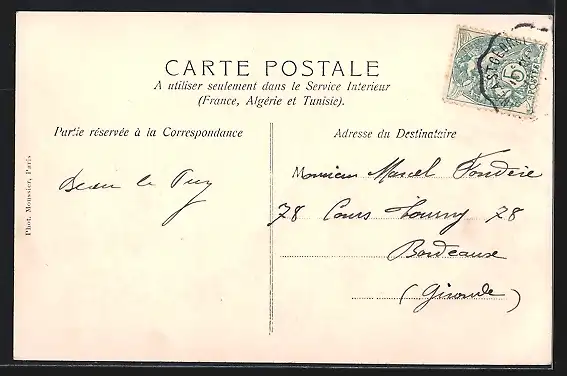 CARTE POSTALE
A utiliser seulement dans le Service Interieur
(France, Algérie et Tunisie).
Partie réservée à la Correspondance
Adresse du Destinataire
Beau le Puy
Monsieur Marcel Fondère
78 Cours Tourny 78
Bordeaux
(Gironde)
Phot. Moussier, Paris
5
POSTES